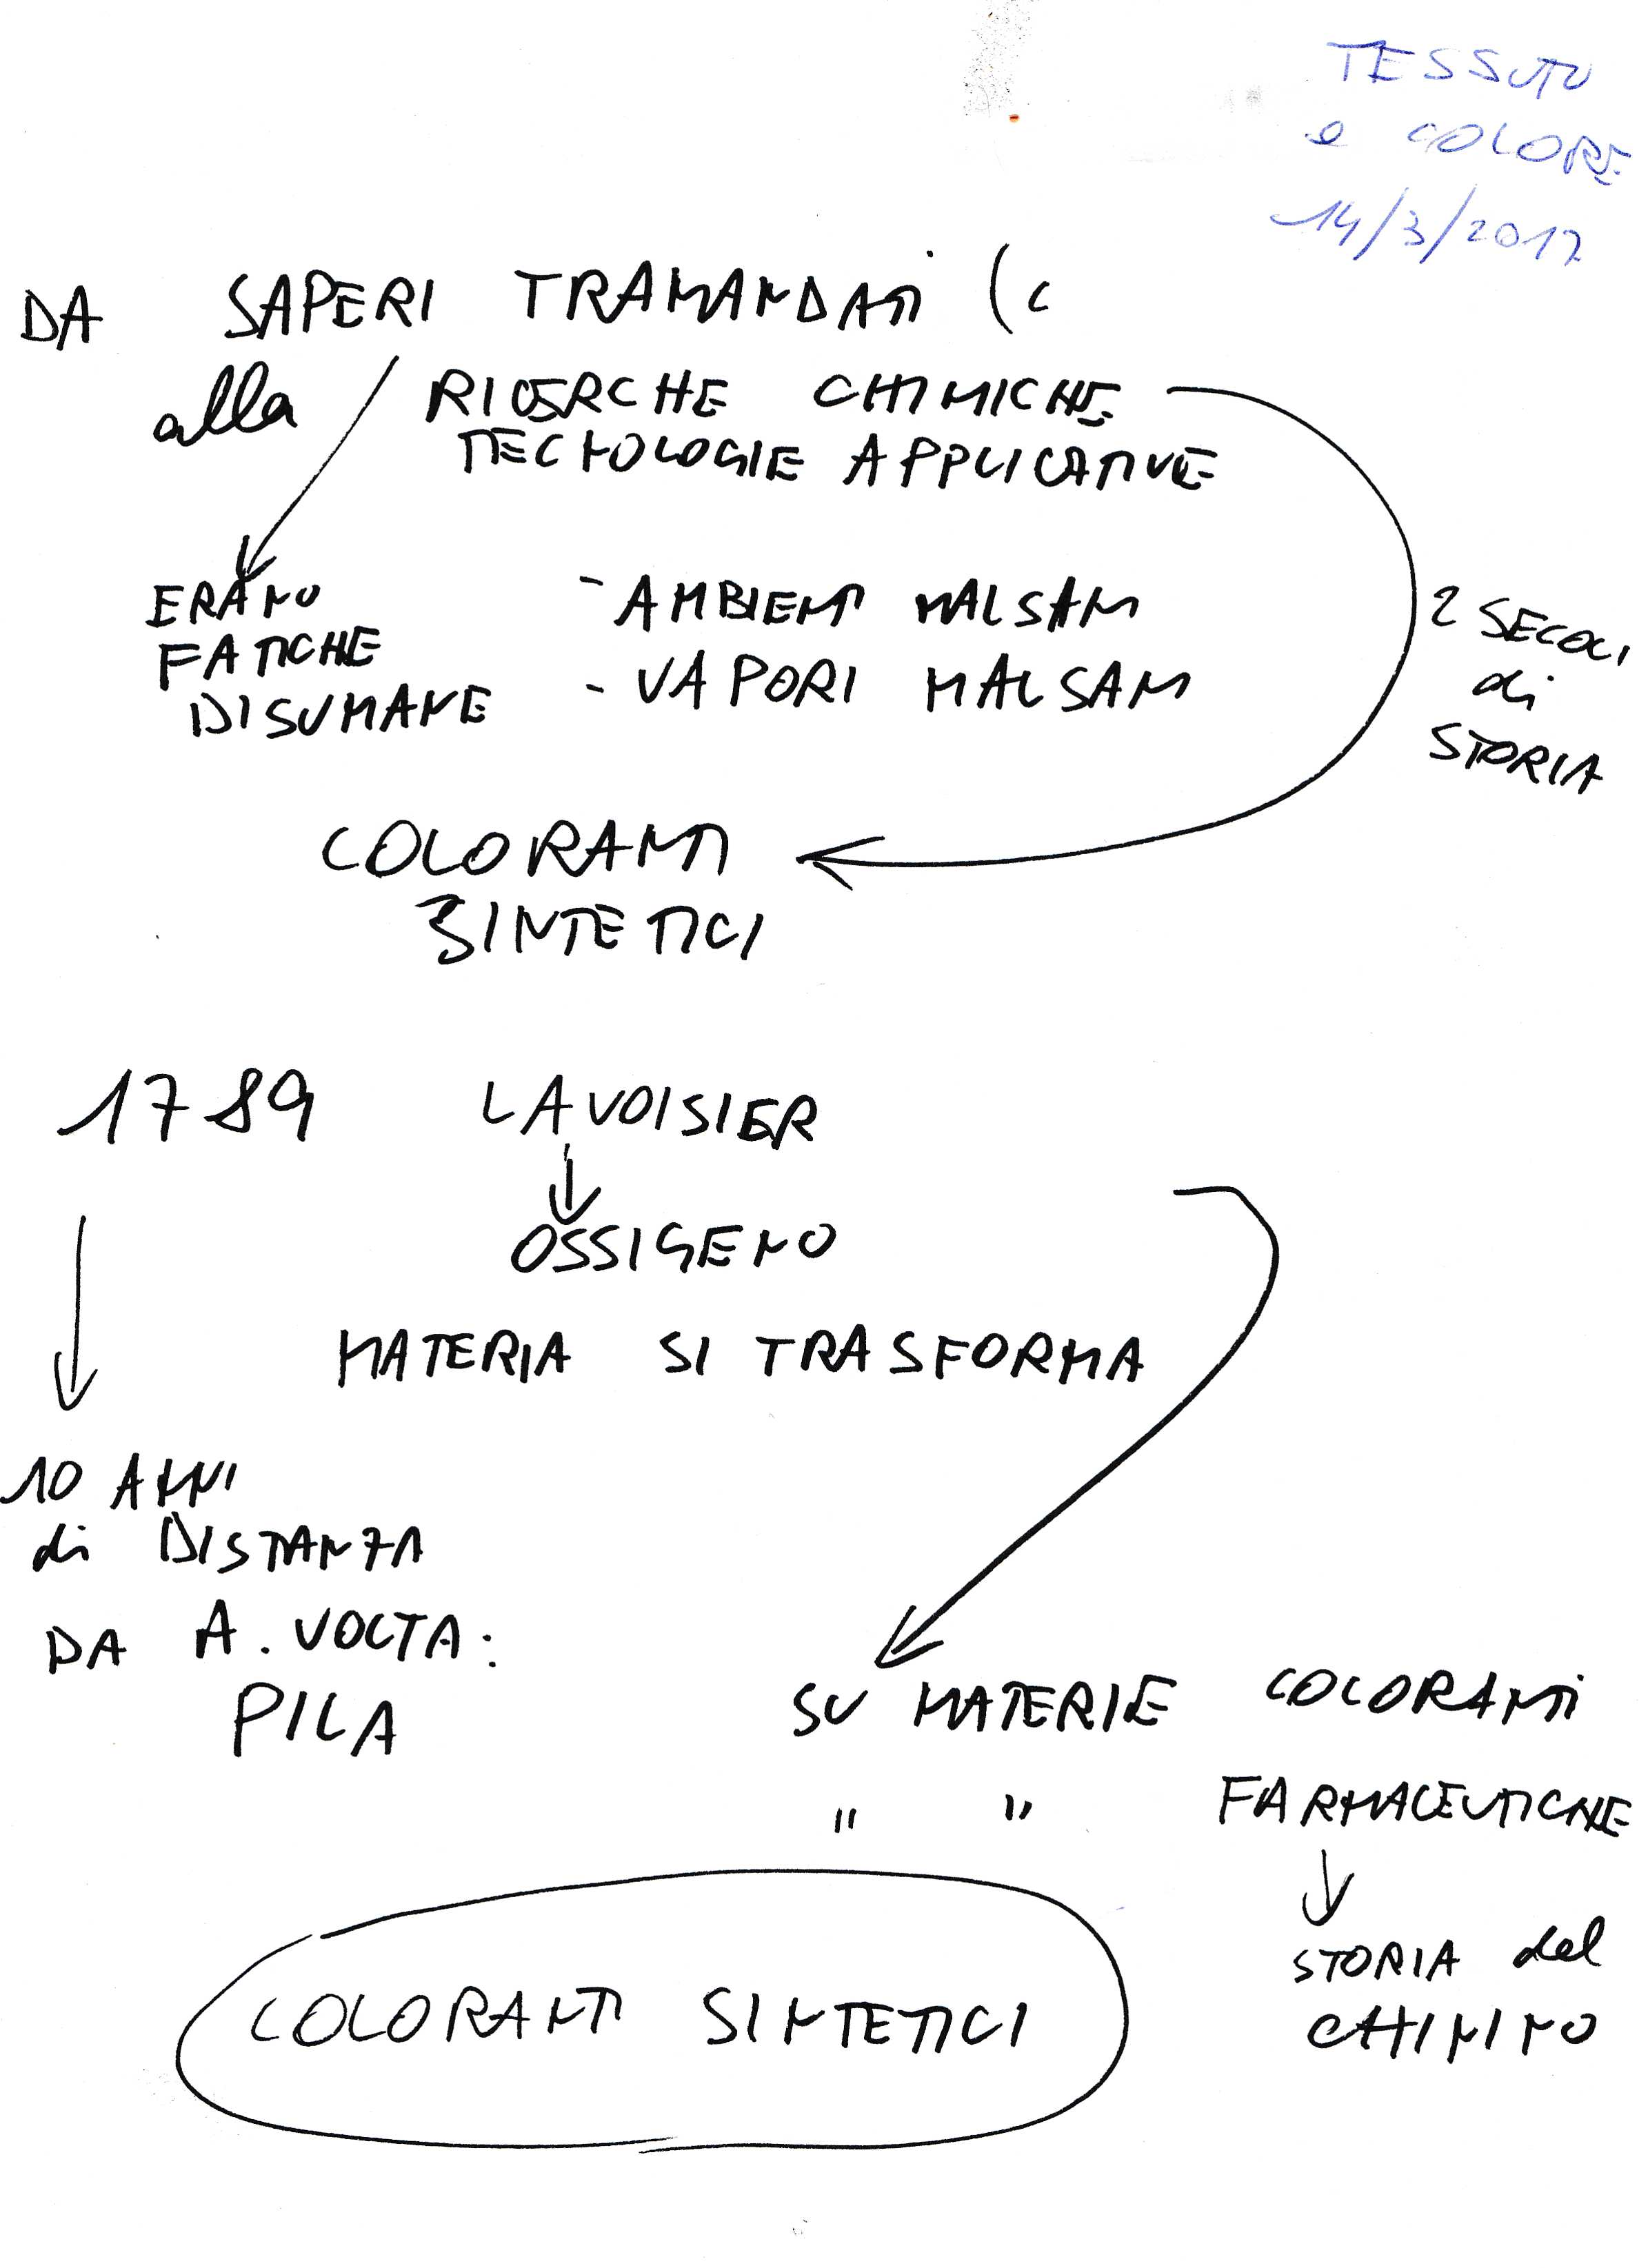 TESSUTO
e COLORE
14/3/2017
DA SAPERI TRAMANDATI (C
alla RICERCHE CHIMICHE
TECNOLOGIE APPLICATIVE
ERANO
FATICHE
DISUMANE
- AMBIENTI MALSANI
- VAPORI MALSANI
2 SECOLI
di
STORIA
COLORANTI
SINTETICI
1789 LAVOISIER
OSSIGENO
MATERIA SI TRASFORMA
10 ANNI
di DISTANZA
DA A. VOLTA:
PILA
SU MATERIE COLORANTI
" " FARMACEUTICHE
STORIA del
CHININO
COLORANTI SINTETICI